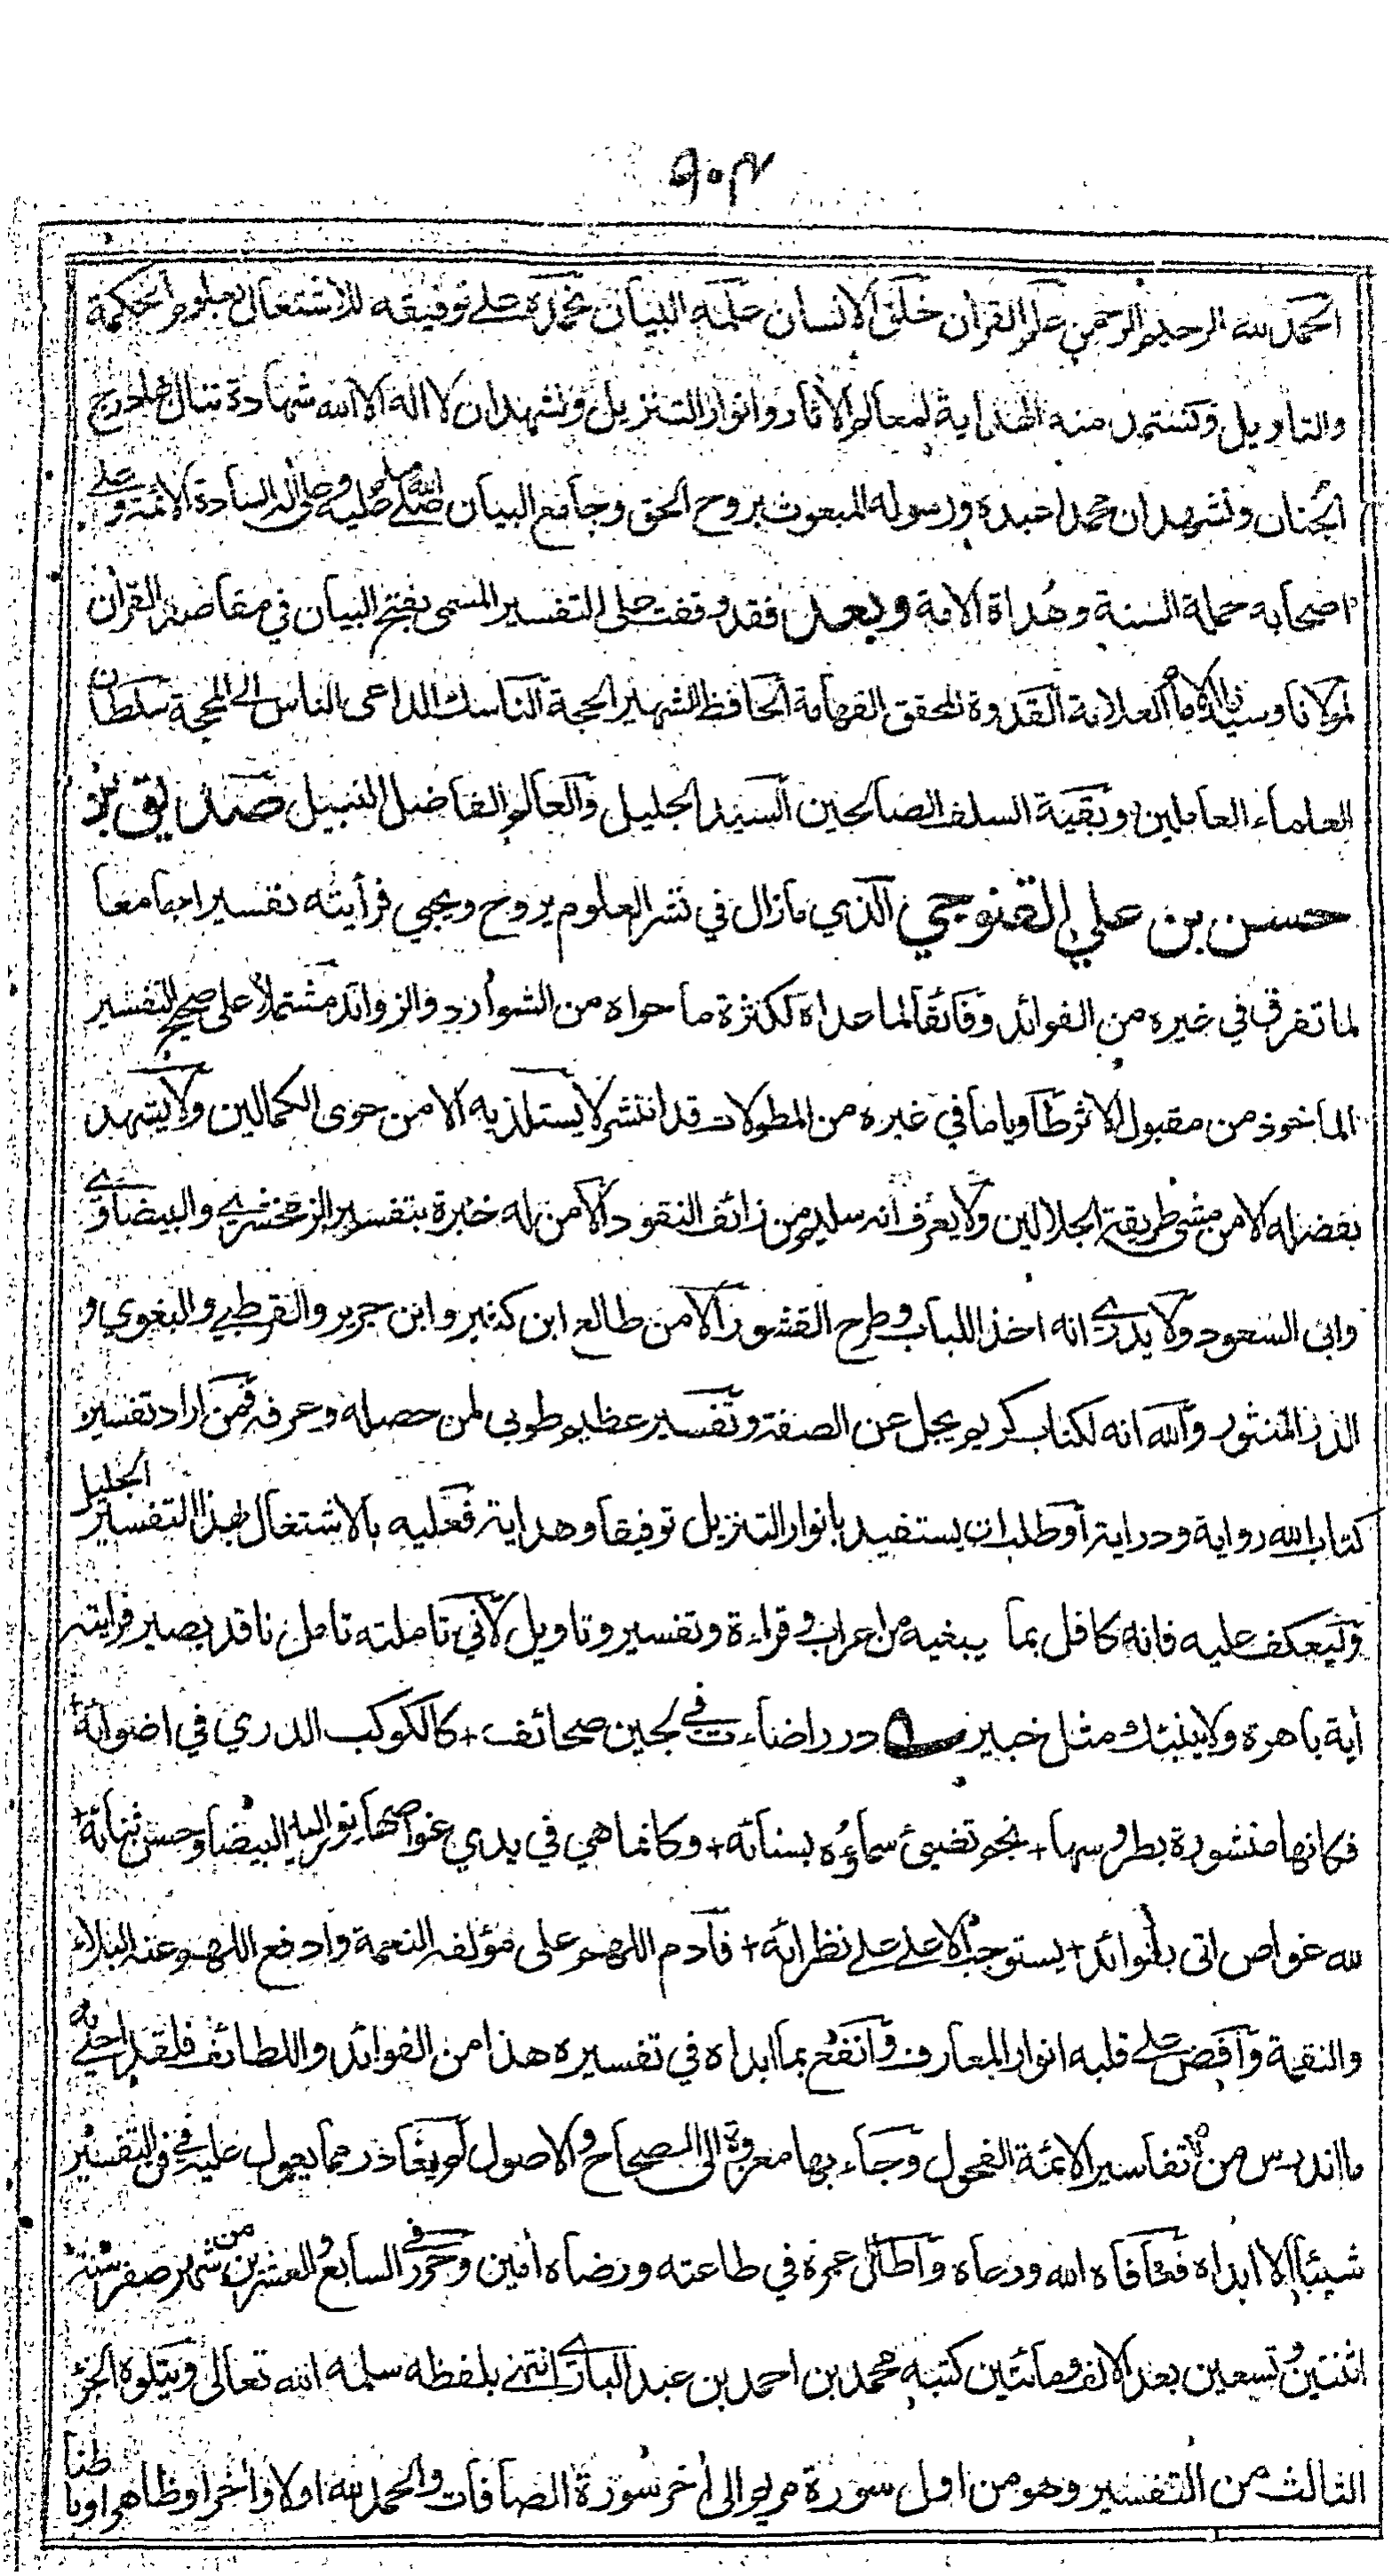 ٩٠٣
الحمد لله الرحيم الرحمن علم القرأن خلق الانسان علمه البيان نحمده على توفيقه للاشتغال بعلوم الحكمة
والتاويل ونستمد منه الهداية لمعالم الأثار وانوار التنزيل ونشهد ان لا اله الا الله شهادة تنال بها درج
الجنان ونشهد ان محمدا عبده ورسوله المبعوث بروح الحق وجامع البيان صلى الله عليه وسلم وعلى أله السادة الائمة وعلى
اصحابه حملة السنة وهداة الامة وبعد فقد وقفت على التفسير المسمى بفتح البيان في مقاصد القرأن
لمولانا وسيدنا الامام العلامة القدوة المحقق الفهامة الحافظ الشهير الحجة الناسك الداعى الناس الى المحجة سلطان
العلماء العاملين وبقية السلف الصالحين السيد الجليل والعالم الفاضل النبيل صديق بن
حسن بن علي القنوجي الذي مازال في نشر العلوم يروح ويجي فرأيته تفسيرا جامعا
لما تفرق في غيره من الفوائد وفائقا لما عداه لكثرة ما حواه من الشوارد والزوائد مشتملا على صحيح التفسير
الماخوذ من مقبول الاثر طاويا ما في غيره من المطولات قد انتشر لا يستلذ به الا من حوى الكمالين ولا يشهد
بفضله الا من مشى طريقة الجلالين ولا يعرف انه سليم من زائف النقود الا من له خبرة بتفسير الزمخشري والبيضاوي
وابى السعود ولا يدري انه اخذ اللباب وطرح القشور الا من طالع ابن كثير وابن جرير والقرطبي والبغوي و
الدر المنثور والله انه لكتاب كريم يجل عن الصفة وتفسير عظيم طوبى لمن حصله وعرفه فمن اراد تفسير
كتاب الله رواية ودراية أو طلب ان يستفيد بانوار التنزيل توفيقا وهداية فعليه بالاشتغال بهذا التفسير الجليل
وليعكف عليه فانه كافل بما يبغيه من اعراب وقراءة وتفسير وتاويل لأني تاملته تامل ناقد بصير فرايته
أية باهرة ولا ينبئك مثل خبير درر اضاءت في لجين صحائف + كالكوكب الدري في اضوائه +
فكانها منثورة بطروسها + نجم تضيئ سماؤه بسنائه + وكانما هي في يدي غواصها نور اليد البيضا وحسن ثنائه +
لله غواص اتى بفوائد + يستوجب الاعلى على نظرائه + فأدم اللهم على مؤلفه النعمة وادفع اللهم عنه البلاء
والنقمة وأفض على قلبه انوار المعارف وانفع بما ابداه في تفسيره هذا من الفوائد واللطائف فلقد احيى به
ما اندرس من تفاسير الائمة الفحول وجاء بها معزوة الى الصحاح والاصول لم يغادر مما يعول عليه في فن التفسير
شيئا الا ابداه فعافاه الله ورعاه وأطال عمره في طاعته ورضاه أمين وحرر في السابع والعشرين من شهر صفر سنة
اثنتين وتسعين بعد الالف ومائتين كتبه محمد بن احمد بن عبد الباري انتهى بلفظه سلمه الله تعالى ويتلوه الجزء
الثالث من التفسير وهو من اول سورة مريم الى أخر سورة الصافات والحمد لله اولا وأخرا وظاهرا وباطنا